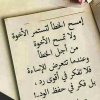 إمسح الخطأ لتستمر الأخوة
ولا تمسح الأخوة
من أجل الخطأ
وعندما تتعرض للإساءة
فلا تفكر في أقوى رد ،
بل فكر في حفظ الود..!